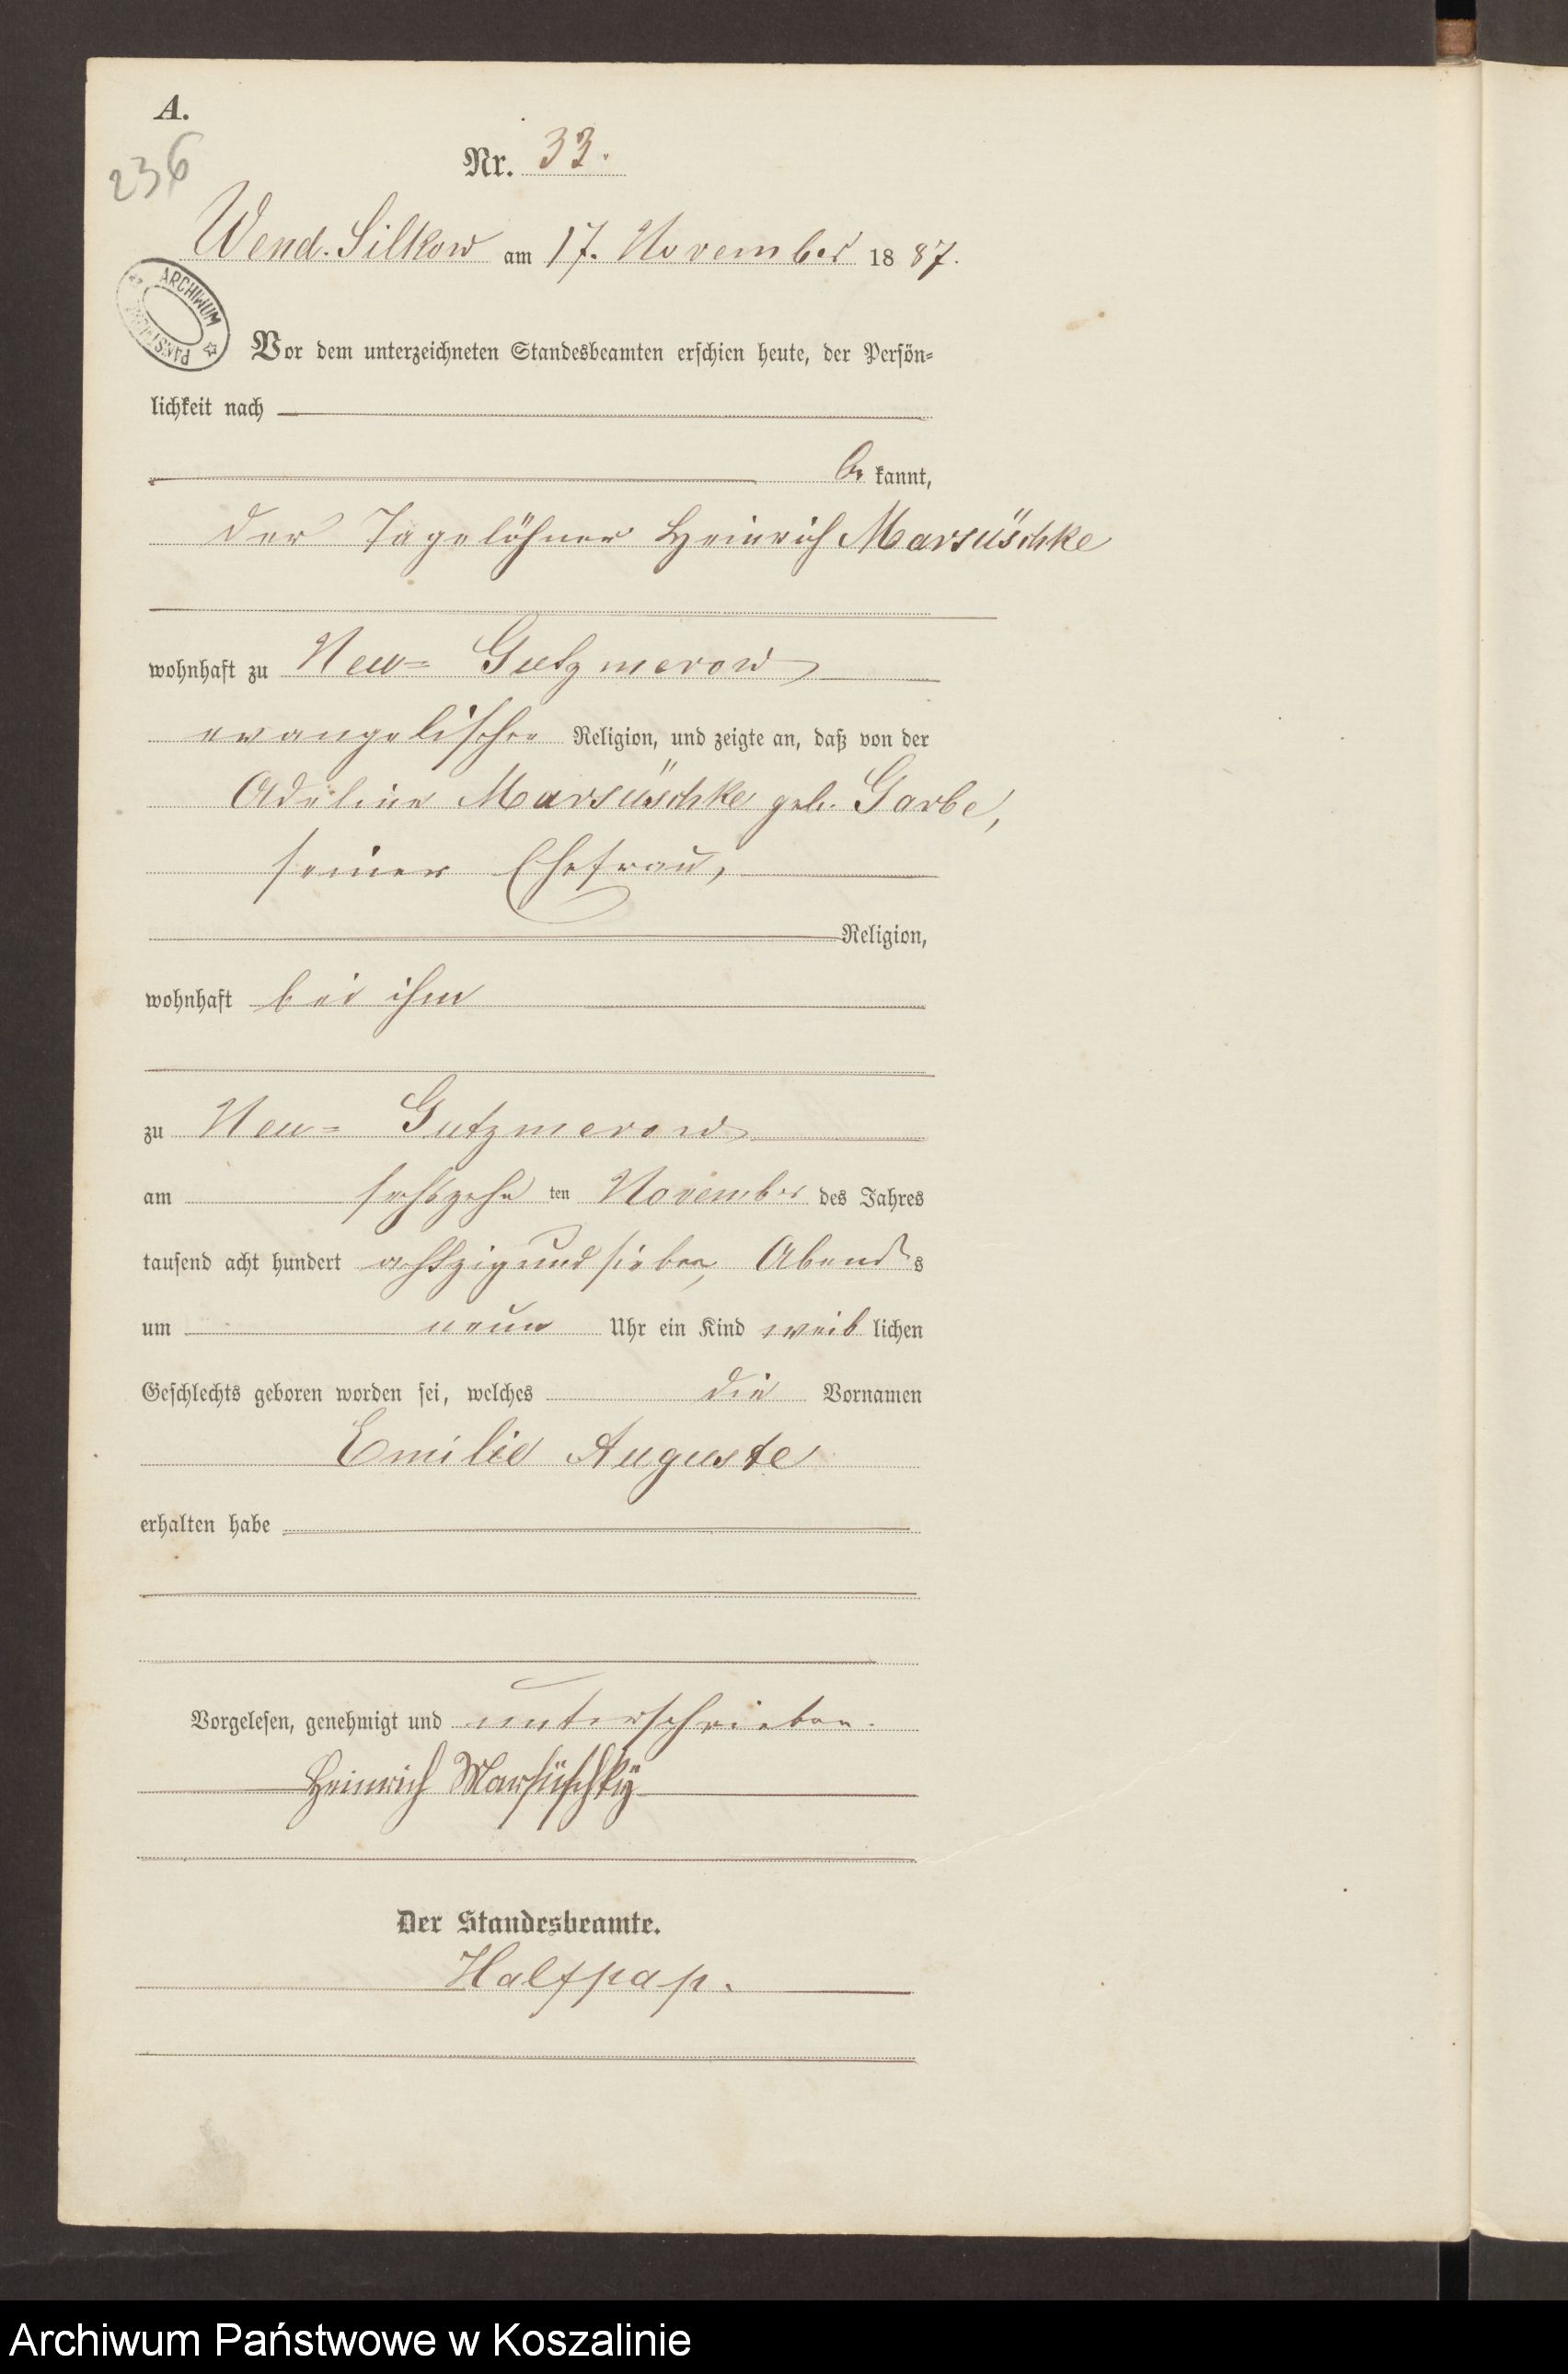 A.
236
Nr. 33.
Wend. Silkow am 17. November 1887.
ARCHIWUM
Vor dem unterzeichneten Standesbeamten erschien heute, der Persön-
lichkeit nach
be kannt,
der Tagelöhner Heinrich Marsüschke
wohnhaft zu Neu- Gutzmerow
evangelischer Religion, und zeigte an, daß von der
Adeline Marsüschke geb. Garbe,
seiner Ehefrau,
Religion,
wohnhaft bei ihm
zu Neu- Gutzmerow
am sechszehn ten November des Jahres
tausend acht hundert achtzig und sieben, Abends
um neun Uhr ein Kind weiblichen
Geschlechts geboren worden sei, welches die Vornamen
Emilie Auguste
erhalten habe
Vorgelesen, genehmigt und unterschrieben.
Heinrich Marsüschky
Der Standesbeamte.
Halfpap.
Archiwum Państwowe w Koszalinie